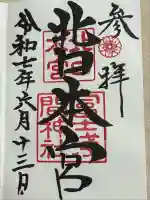 参拝
北口本宮
冨士浅
間神社
令和七年六月十三日